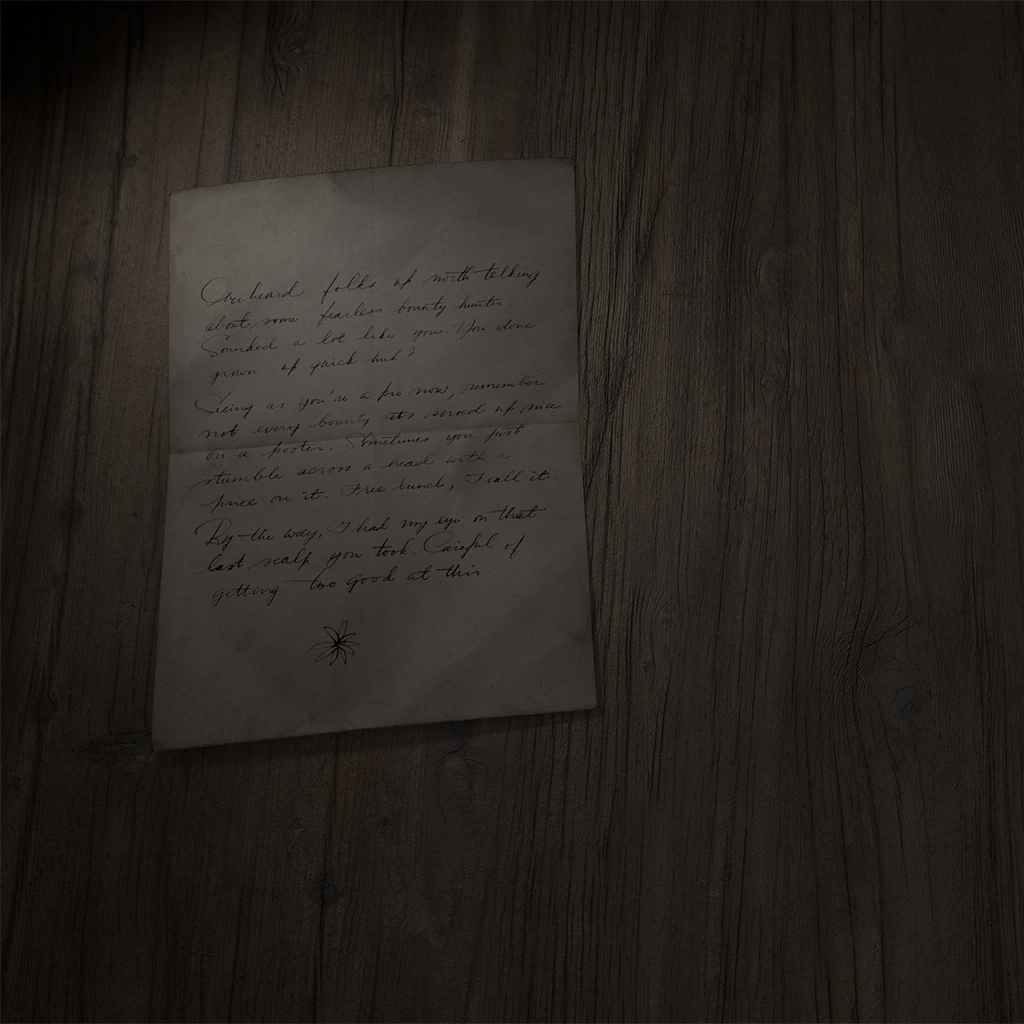 Overheard folks up north telking
about some fearless bounty hunter.
Sounded a lot like you. You done
grown up quick huh?
Seeing as you're a pro now, remember
not every bounty its served up nice
on a poster. Sometimes you just
stumble across a head with a
price on it. Free lunch, I call it.
By the way, I had my eye on that
last scalp you took. Careful of
getting too good at this.